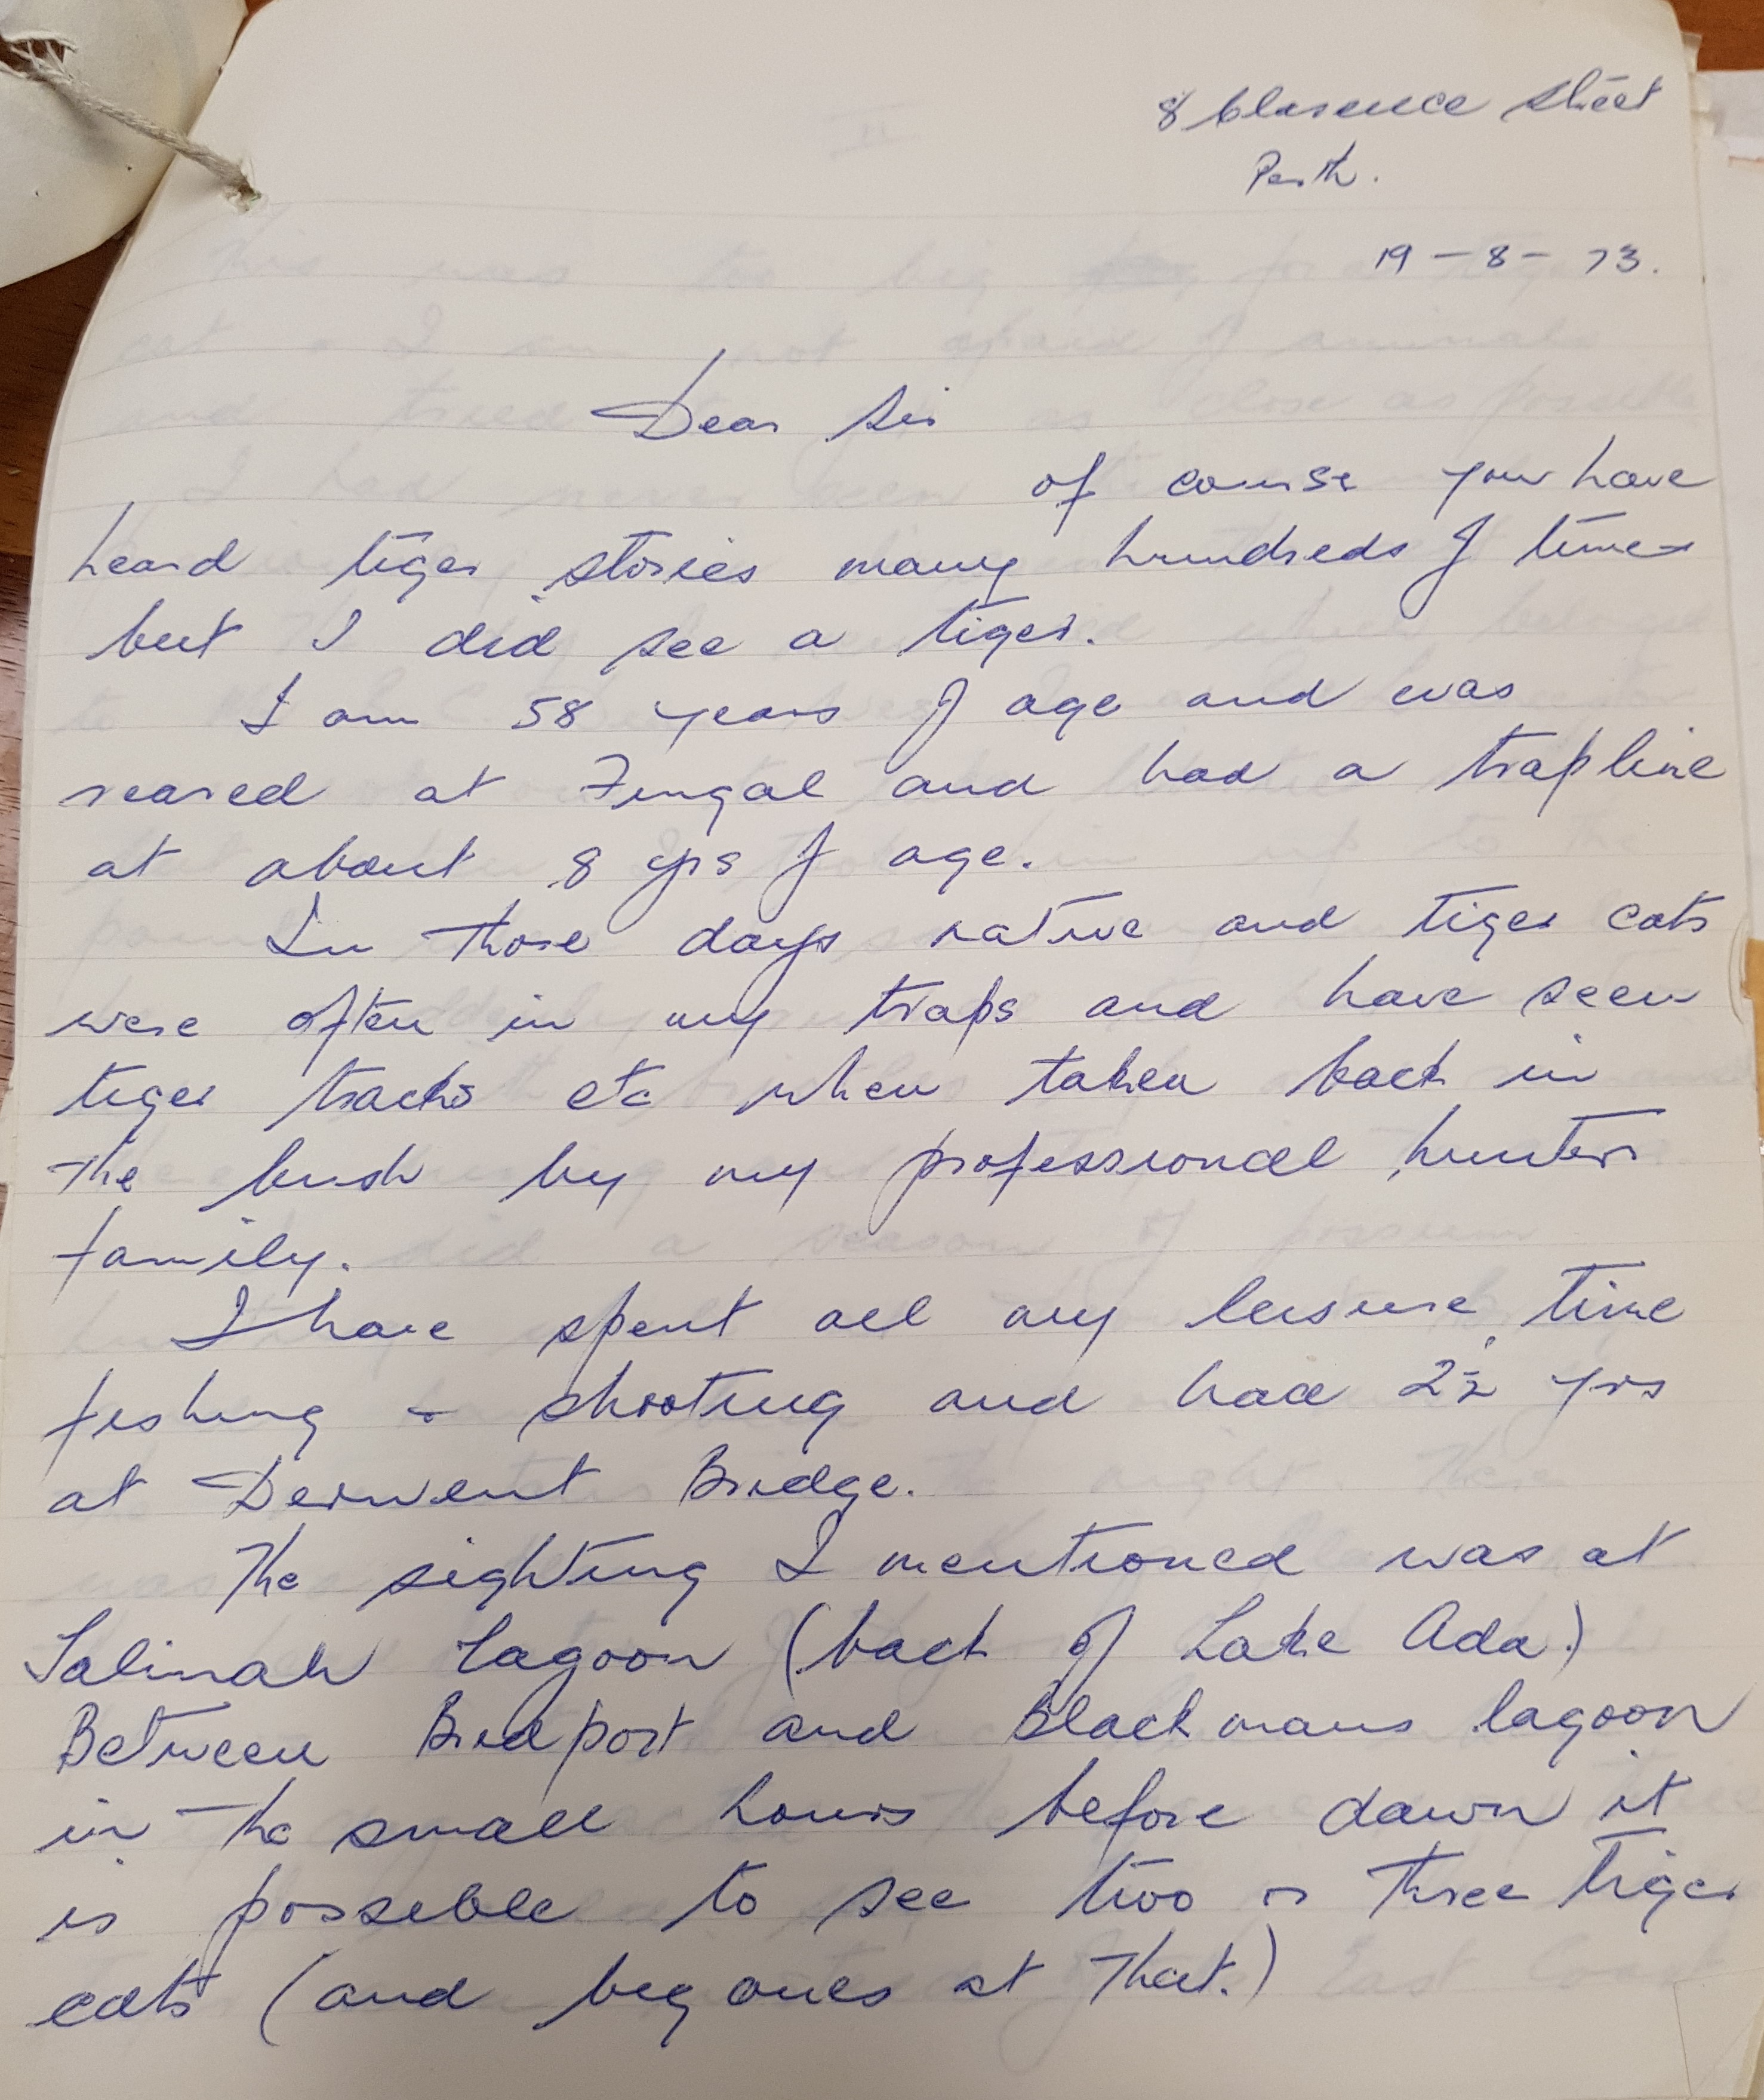 8 Clarence Street
Perth.
19 - 8 - 73.
Dear Sir
of course you have
heard tiger stories many hundreds of times
but I did see a tiger.
I am 58 years of age and was
reared at Fingal and had a trapline
at about 8 yrs of age.
In those days native and tiger cats
were often in my traps and have seen
tiger tracks etc when taken back in
the bush by my professional hunter
family.
I have spent all my leisure time
fishing & shooting and had 2½ yrs
at Derwent Bridge.
The sighting I mentioned was at
Lagoon (back of Lake Ada)
Between Bridport and Blackmans lagoon
in the small hours before dawn it
is possible to see two or three tiger
cats (and big ones at that.)